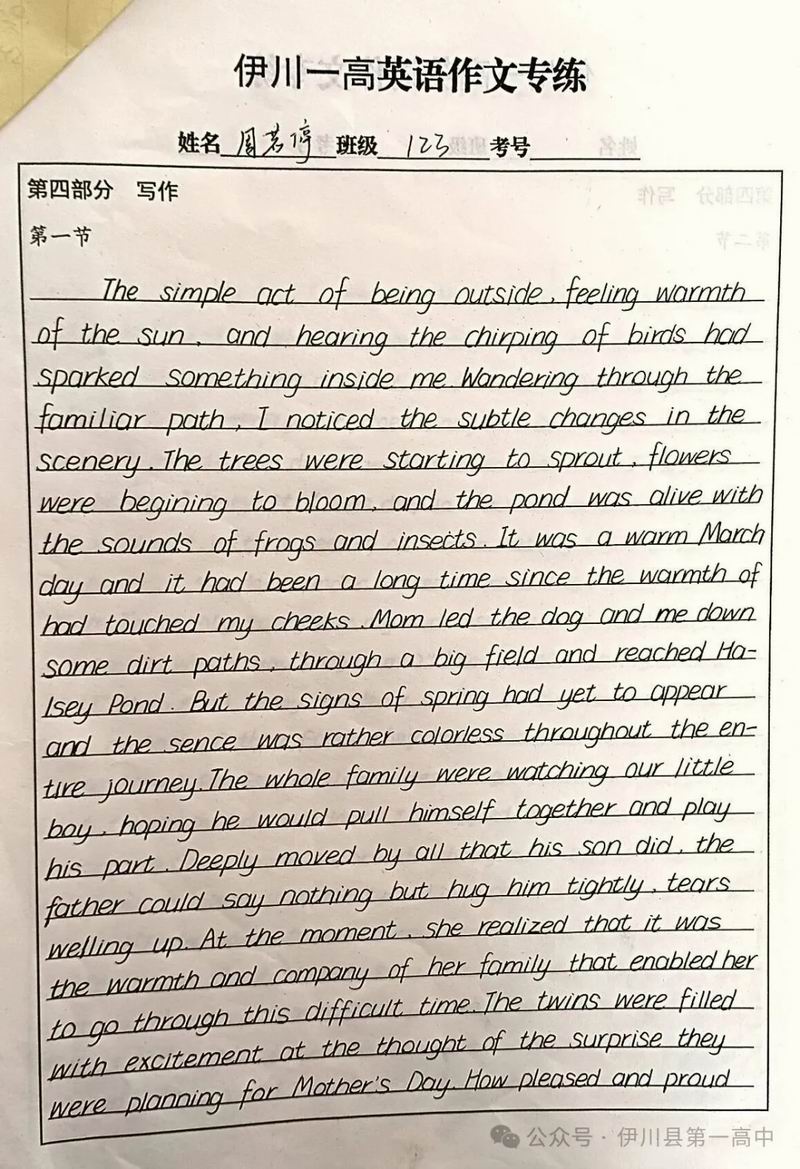 伊川一高英语作文专练
姓名 周若停 班级 123 考号
第四部分 写作
第一节
The simple act of being outside, feeling warmth
of the sun, and hearing the chirping of birds had
sparked something inside me. Wandering through the
familiar path, I noticed the subtle changes in the
scenery. The trees were starting to sprout, flowers
were begining to bloom, and the pond was alive with
the sounds of frogs and insects. It was a warm March
day and it had been a long time since the warmth of
had touched my cheeks. Mom led the dog and me down
some dirt paths, through a big field and reached Ha-
lsey Pond. But the signs of spring had yet to appear
and the sence was rather colorless throughout the en-
tire journey. The whole family were watching our little
boy, hoping he would pull himself together and play
his part. Deeply moved by all that his son did, the
father could say nothing but hug him tightly, tears
welling up. At the moment, she realized that it was
the warmth and company of her family that enabled her
to go through this difficult time. The twins were filled
with excitement at the thought of the surprise they
were planning for Mother's Day. How pleased and proud
公众号·伊川县第一高中